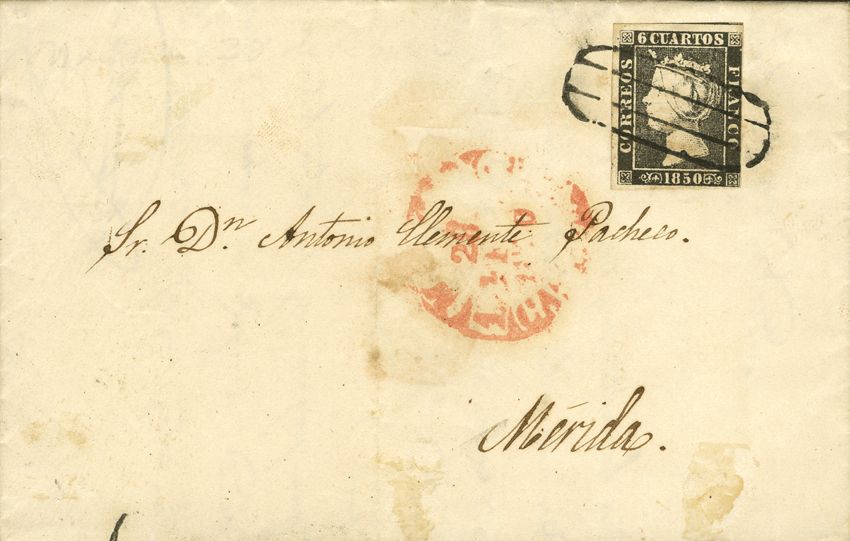 6 CUARTOS
CORREOS
FRANCO
1850
Sr. Dn. Antonio Clemente Pacheco.
Mérida.